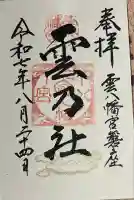 奉拝 雲八幡宮磐座
雲乃社
令和七年八月二十四日